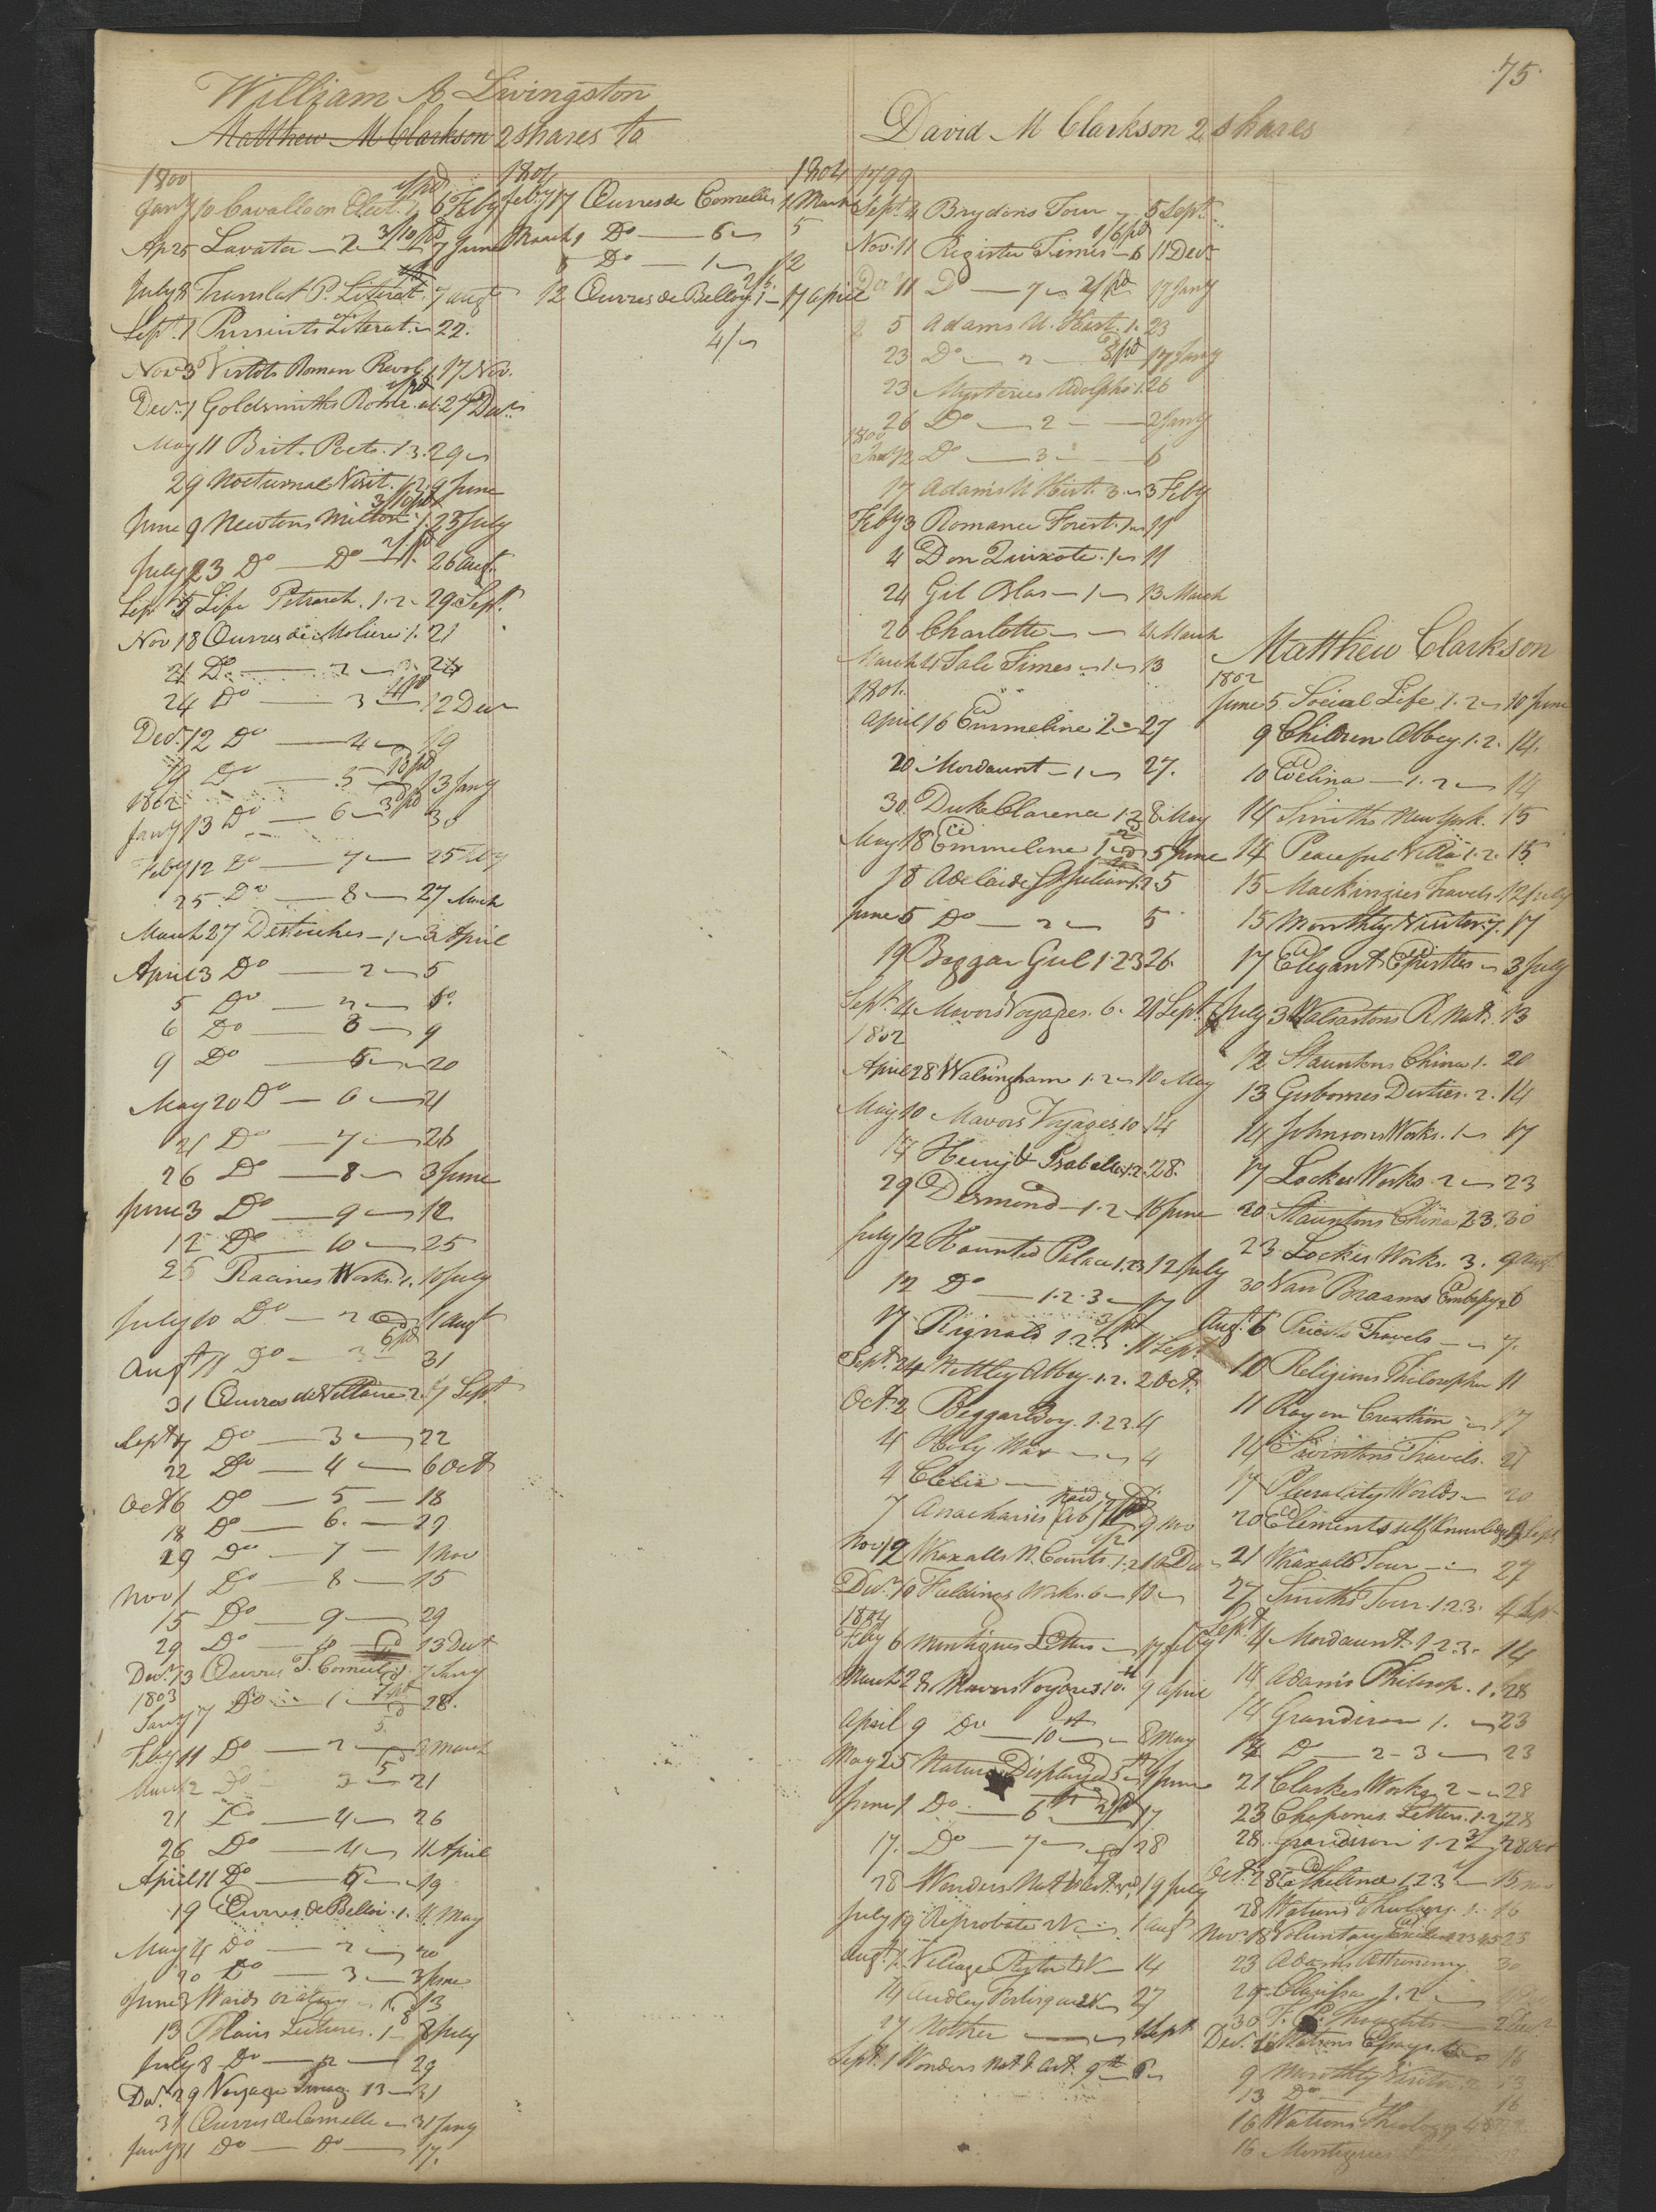 75
William A Livingston
Matthew M Clarkson 2 shares to
1800
Jany 10 Cavallo on Elect. 1/pd 6 Feby
Ap 25 Lavater — 2 — 3/10 pd 7 June
July 8 Translat P. Literat. 7 augt
Sept. 1 Pursuits Literat. 22.
Novr 3 Vertots Roman Revol 1 17 Nov.
Decr. 1 Goldsmiths Rome 27 Decr
May 11 Brit. Poets. 1.3. 29
29 Nocturnal Visit. 1.2. 9 June
June 9 Newtons Milton 1. 3/10 pd 23 July
July 23 Do — Do 26 Augt.
Sept 5 Life Petrarch. 1.2 29 Sept.
Nov 18 Œuvres de Moliere 1. 21
21 Do — 2 — 24
24 Do — 3 — 12 Decr
Decr. 12 Do — 4 — 19
19 Do — 5 — 13 Jany
1802
Jany 13 Do — 6 — 30
Feby 12 Do — 7 — 25 Feby
25 Do — 8 — 27 March
March 27 Destouches — 1 — 3 April
April 3 Do — 2 — 5
5 Do — 2 — 6.
6 Do — 3 — 9
9 Do — 5 — 20
May 20 Do — 6 — 21
21 Do — 7 — 26
26 Do — 8 — 3 June
June 3 Do — 9 — 12
12 Do — 10 — 25
25 Racines Works. 1. 10 July
July 10 Do — 2 — 1 augt
Augt 11 Do — 3 — 31
31 Œuvres de Voltaire 2. 7 Sept
Sept 7 Do — 3 — 22
22 Do — 4 — 6 Oct
Oct 6 Do — 5 — 18
18 Do — 6. — 29
29 Do — 7 — 1 Nov
Nov 1 Do — 8 — 15
15 Do — 9 — 29
29 Do — 10 — 13 Decr
Decr. 13 Œuvres T. Corneil 7 Jany
1803
Jany 7 Do — 1 — 28.
Feby 11 Do — 2 — 2 March
March 2 Do — 3 — 21
21 Do — 4 — 26
26 Do — 4 — 11 April
April 11 Do — 5 — 19
19 Œuvres de Belloi. 1. 4 May
May 4 Do — 2 — 20
20 Do — 3 — 3 June
June 3 Wards oratory 13
13 Blairs Lectures. 1 — 8 July
July 8 Do — 2 — 29
Decr. 29 Voyage Imag. 13 — 31
31 Œuvres de Corneille — 31 Jany
Jany 31 Do — Do — 17.
1804 1804
Feby 17 Œuvres de Corneille 1 March
March 1 Do — 6 — 5
5 Do — 1 — 12
12 Œuvres de Belloy. 1 — 17 april
4/
David M Clarkson 2 shares
1799
Sept. 4 Brydons Tour 5 Sept.
Nov. 11 Register Times 6 1/6 pd 11 Decr
Decr 11 Do — 7 — 2/pd 17 Jany
5 Adams U. Hist. 1. 23
23 Do — 2 — 3/pd 17 Jany
23 Mysteries Udolpho 1. 26
26 Do — 2 — 2 Jany
1800
Jany 2 Do — 3 — 6
17 Adams U Hist. 3 3 Feby
Feby 3 Romance Forest. 1 11
4 Don Quixote. 1 11
24 Gil Blas — 1 — 13 March
26 Charlotte — 4 March
March 4 Tale Times — 1 — 13
1801.
April 16 Emmeline 2 27
20 Mordaunt — 1 — 27.
30 Duke Clarence 1.2 8 May
May 18 Emmeline 5 June
18 Adelaide 5
June 5 Do — 2 — 5
19 Beggar Girl 1.2.3 26.
Sept. 4 Mavors Voyages. 6. 21 Sept.
1802
April 28 Walsingham 1.2 10 May
May. 10 Mavors Voyages 10 14
14 Henry & Isabella 1.2. 28.
29 Desmond — 1.2 16 June
July 12 Haunted Palace 1.2.3 12 July
12 Do — 1.2.3 — 17
17 Riginald 1.2.3. 11 Sept
Sept. 24 Nettley Abbey. 1.2. 2 Oct.
Oct. 2 Beggar Boy. 1.2.3. 4
4 Holy War 4
4 Clelia —
7 Anacharsis paid 9 nov
Nov. 9 Wraxalls N. Courts. 1.2 10 Decr
Decr. 10 Fieldings Works. 6 — 10
1804
Feby 6 Montigues Letters — 17 Feby
March 28 Mavors Voyages 10th 9 april
April 9 Do — 10th — 8 May
May 25 Nature Displayed 5th 1 June
June 1 Do — 6th 17
17. Do — 7 — 28
28 Wonders Nat & Art. 3rd. 19 July
July 19 Reprobate 1 augt
Augt. 1. Village 14
14 Audley Fortisque 27
27 Mother — 1 Sept
Sept. 1 Wonders Nat & Art. 9th 6
Matthew Clarkson
1802
June 5 Social Life 1.2 10 June
9 Children Abbey 1.2. 14.
10 Evelina — 1.2 14
14 Smiths New York. 15
14 Peaceful Villa 1.2. 15
15 Mackinzies Travels 12 July
15 Monthly Visitor 7. 17
17 Elegant Epistles 3 July
July 3 Walsastons R. Nat. 13
12 Stauntons China 1. 20
13 Gisbornes Duties. 2. 14
14 Johnsons Works. 1 17
17 Lockes Works. 2 — 23
20 Stauntons China 2.3. 30
23 Lockes Works. 3. 9 Augt
30 Van Braams Embassy 6
Augt. 6 Travels — 7.
10 Religious Philosopher 11
11 Ray on Creation — 17
14 Swintons Travels. 21
17 Plurality Worlds — 20
20 Elements self Knowledge Sept
21 Wraxalls Tour — 27
27 Smiths Tour. 1.2.3. 4 Sept
Sept 4 Mordaunt. 1.2.3. 14
14 Adams Philosop. 1. 28
14 Grandison 1. 23
14 Do — 2 - 3 — 23
21 Clarkes Works 2 — 28
23 Chapones Letters. 1.2 28
28. Grandison 1.2 28 Oct
Oct. 28 Ethelinde 1.2.3 15 nov
28 Watsons Theology. 1. 16
Nov. 18 Voluntary Exile 1 2 3 4 5 23
23 Adams Astronomy. 30
29 Clarissa 1.2
30 T. P. Thoughts — 2 Decr
Decr. Watsons Essays. 16
9 Monthly Visitor 13
13 Do 16
16 Watsons Theology
16 Montigues